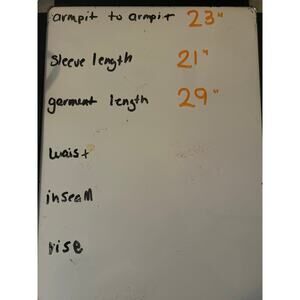 armpit to armpit 23"
sleeve length 21"
garment length 29"
waist
inseam
rise